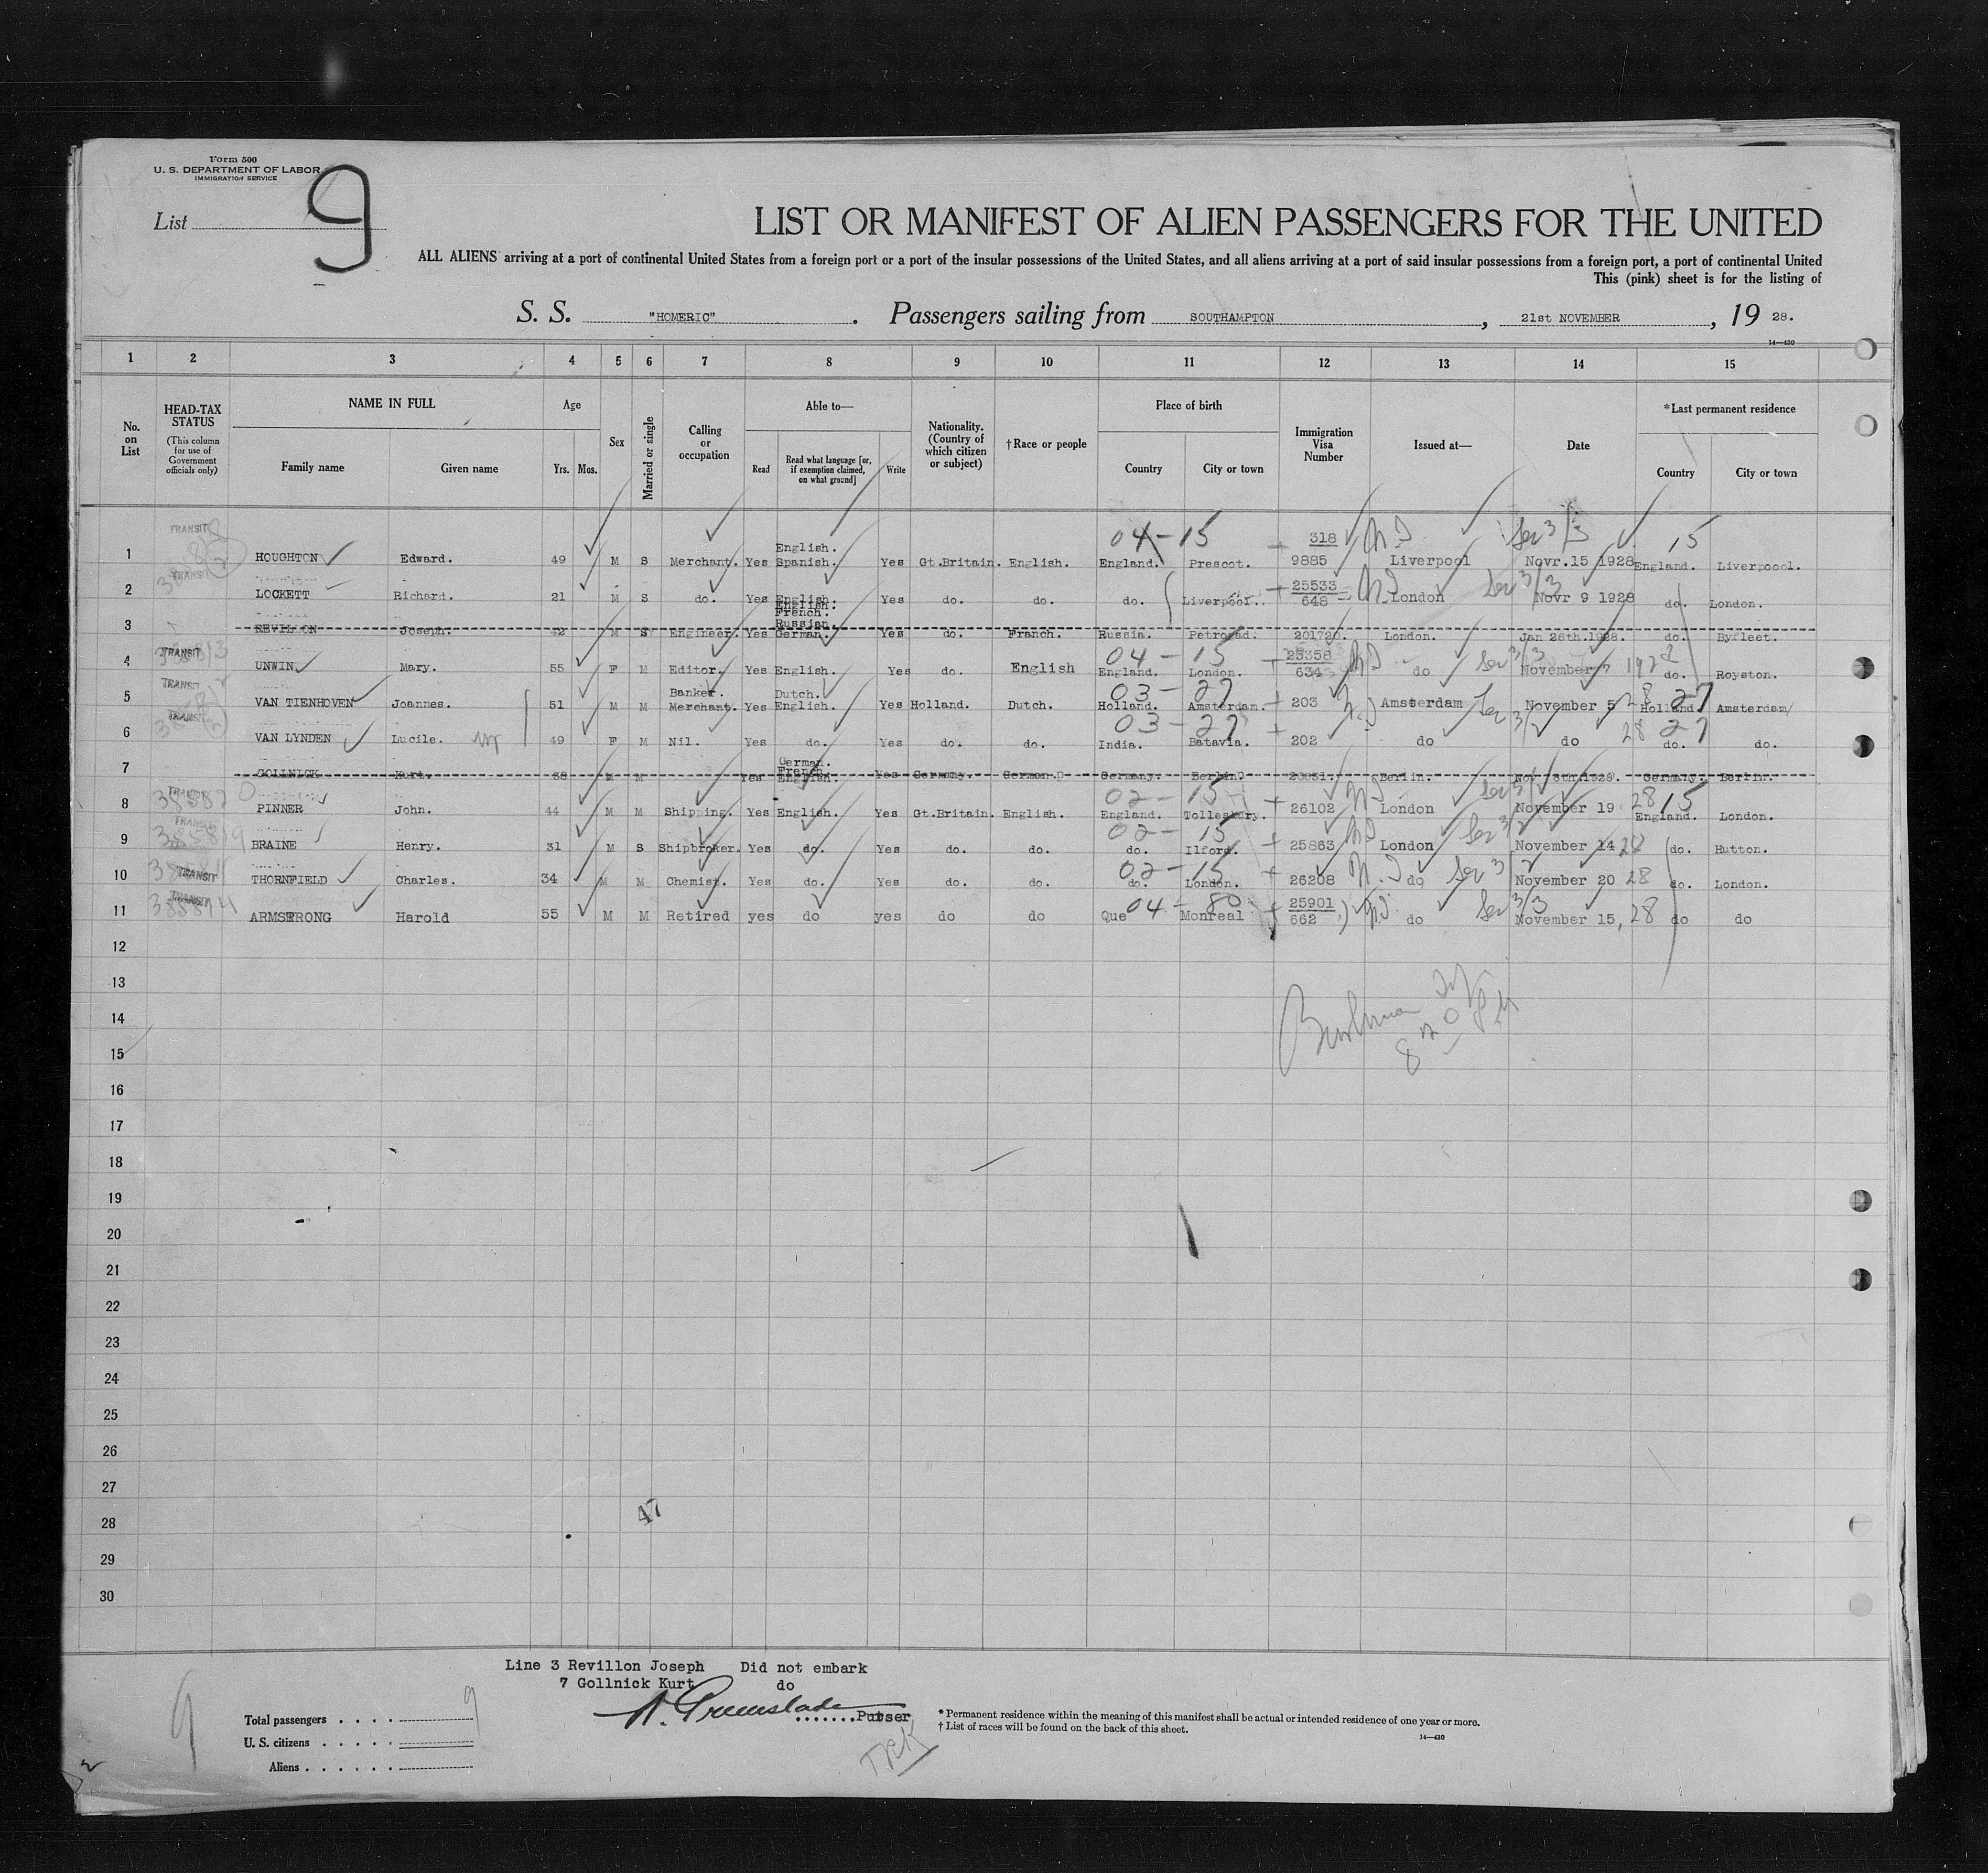 Form 500
U. S. DEPARTMENT OF LABOR
IMMIGRATION SERVICE
List 9
LIST OR MANIFEST OF ALIEN PASSENGERS FOR THE UNITED
ALL ALIENS arriving at a port of continental United States from a foreign port or a port of the insular possessions of the United States, and all aliens arriving at a port of said insular possessions from a foreign port, a port of continental United
This (pink) sheet is for the listing of
S. S. "HOMERIC". Passengers sailing from SOUTHAMPTON, 21st NOVEMBER, 19 28.
14—430
1 2 3 4 5 6 7 8 9 10 11 12 13 14 15
No. on List
HEAD-TAX STATUS (This column for use of Government officials only)
NAME IN FULL
Family name Given name
Age
Yrs. Mos.
Sex
Married or single
Calling or occupation
Able to—
Read
Read what language [or, if exemption claimed, on what ground]
Write
Nationality. (Country of which citizen or subject)
†Race or people
Place of birth
Country City or town
Immigration Visa Number
Issued at—
Date
*Last permanent residence
Country City or town
TRANSIT 04-15 318 15
1 HOUGHTON Edward. 49 M S Merchant. Yes English. Spanish. Yes Gt.Britain. English. England. Prescot. 9885 Liverpool Novr.15 1928 England. Liverpoool.
TRANSIT
2 LOCKETT Richard. 21 M S do. Yes English. Yes do. do. do. Liverpool.. 25533 648 London Novr 9 1928 do. London.
3 REVILLON Joseph. 42 M S Engineer. Yes English. French. Russian. German. Yes do. Franch. Russia. Petrograd. 201720. London. Jan 26th.1928. do. Byfleet.
TRANSIT 04 - 15
4 UNWIN Mary. 55 F M Editor. Yes English. Yes do. English England. London. 25358 634 do November 7 1928 do. Royston.
TRANSIT 03 - 27
5 VAN TIENHOVEN Joannes. 51 M M Banker. Merchant. Yes Dutch. English. Yes Holland. Dutch. Holland. Amsterdam. 203 Amsterdam November 5 28 Holland 27 Amsterdam/
TRANSIT 03 - 27
6 VAN LYNDEN Lucile. 49 F M Nil. Yes do. Yes do. do. India. Batavia. 202 do do 28 do. 27 do.
7 GOLLNICK Kurt. 38 M M Yes German. French. English. Yes Germany. German. Germany. Berlin. Berlin. Germany. Berlin.
TRANSIT 02 - 15
8 PINNER John. 44 M M Shipping. Yes English. Yes Gt.Britain. English. England. Tollesbury. 26102 London November 19 28 15 England. London.
TRANSIT 02 - 15
9 BRAINE Henry. 31 M S Shipbroker. Yes do. Yes do. do. do. Ilford. 25863 London November 14 28 do. Hutton.
TRANSIT 02 - 15
10 THORNFIELD Charles. 34 M M Chemist. Yes do. Yes do. do. do. London. 26208 do November 20 28 do. London.
TRANSIT 04 - 80
11 ARMSTRONG Harold 55 M M Retired yes do yes do do Que Monreal 25901 662 do November 15, 28 do do
12
13
14
15
16
17
18
19
20
21
22
23
24
25
26
27
28
29
30
47
Line 3 Revillon Joseph Did not embark
7 Gollnick Kurt do
Purser
9
Total passengers . . . . 9
U. S. citizens . . . . .
Aliens . . . . . .
* Permanent residence within the meaning of this manifest shall be actual or intended residence of one year or more.
† List of races will be found on the back of this sheet.
14—430